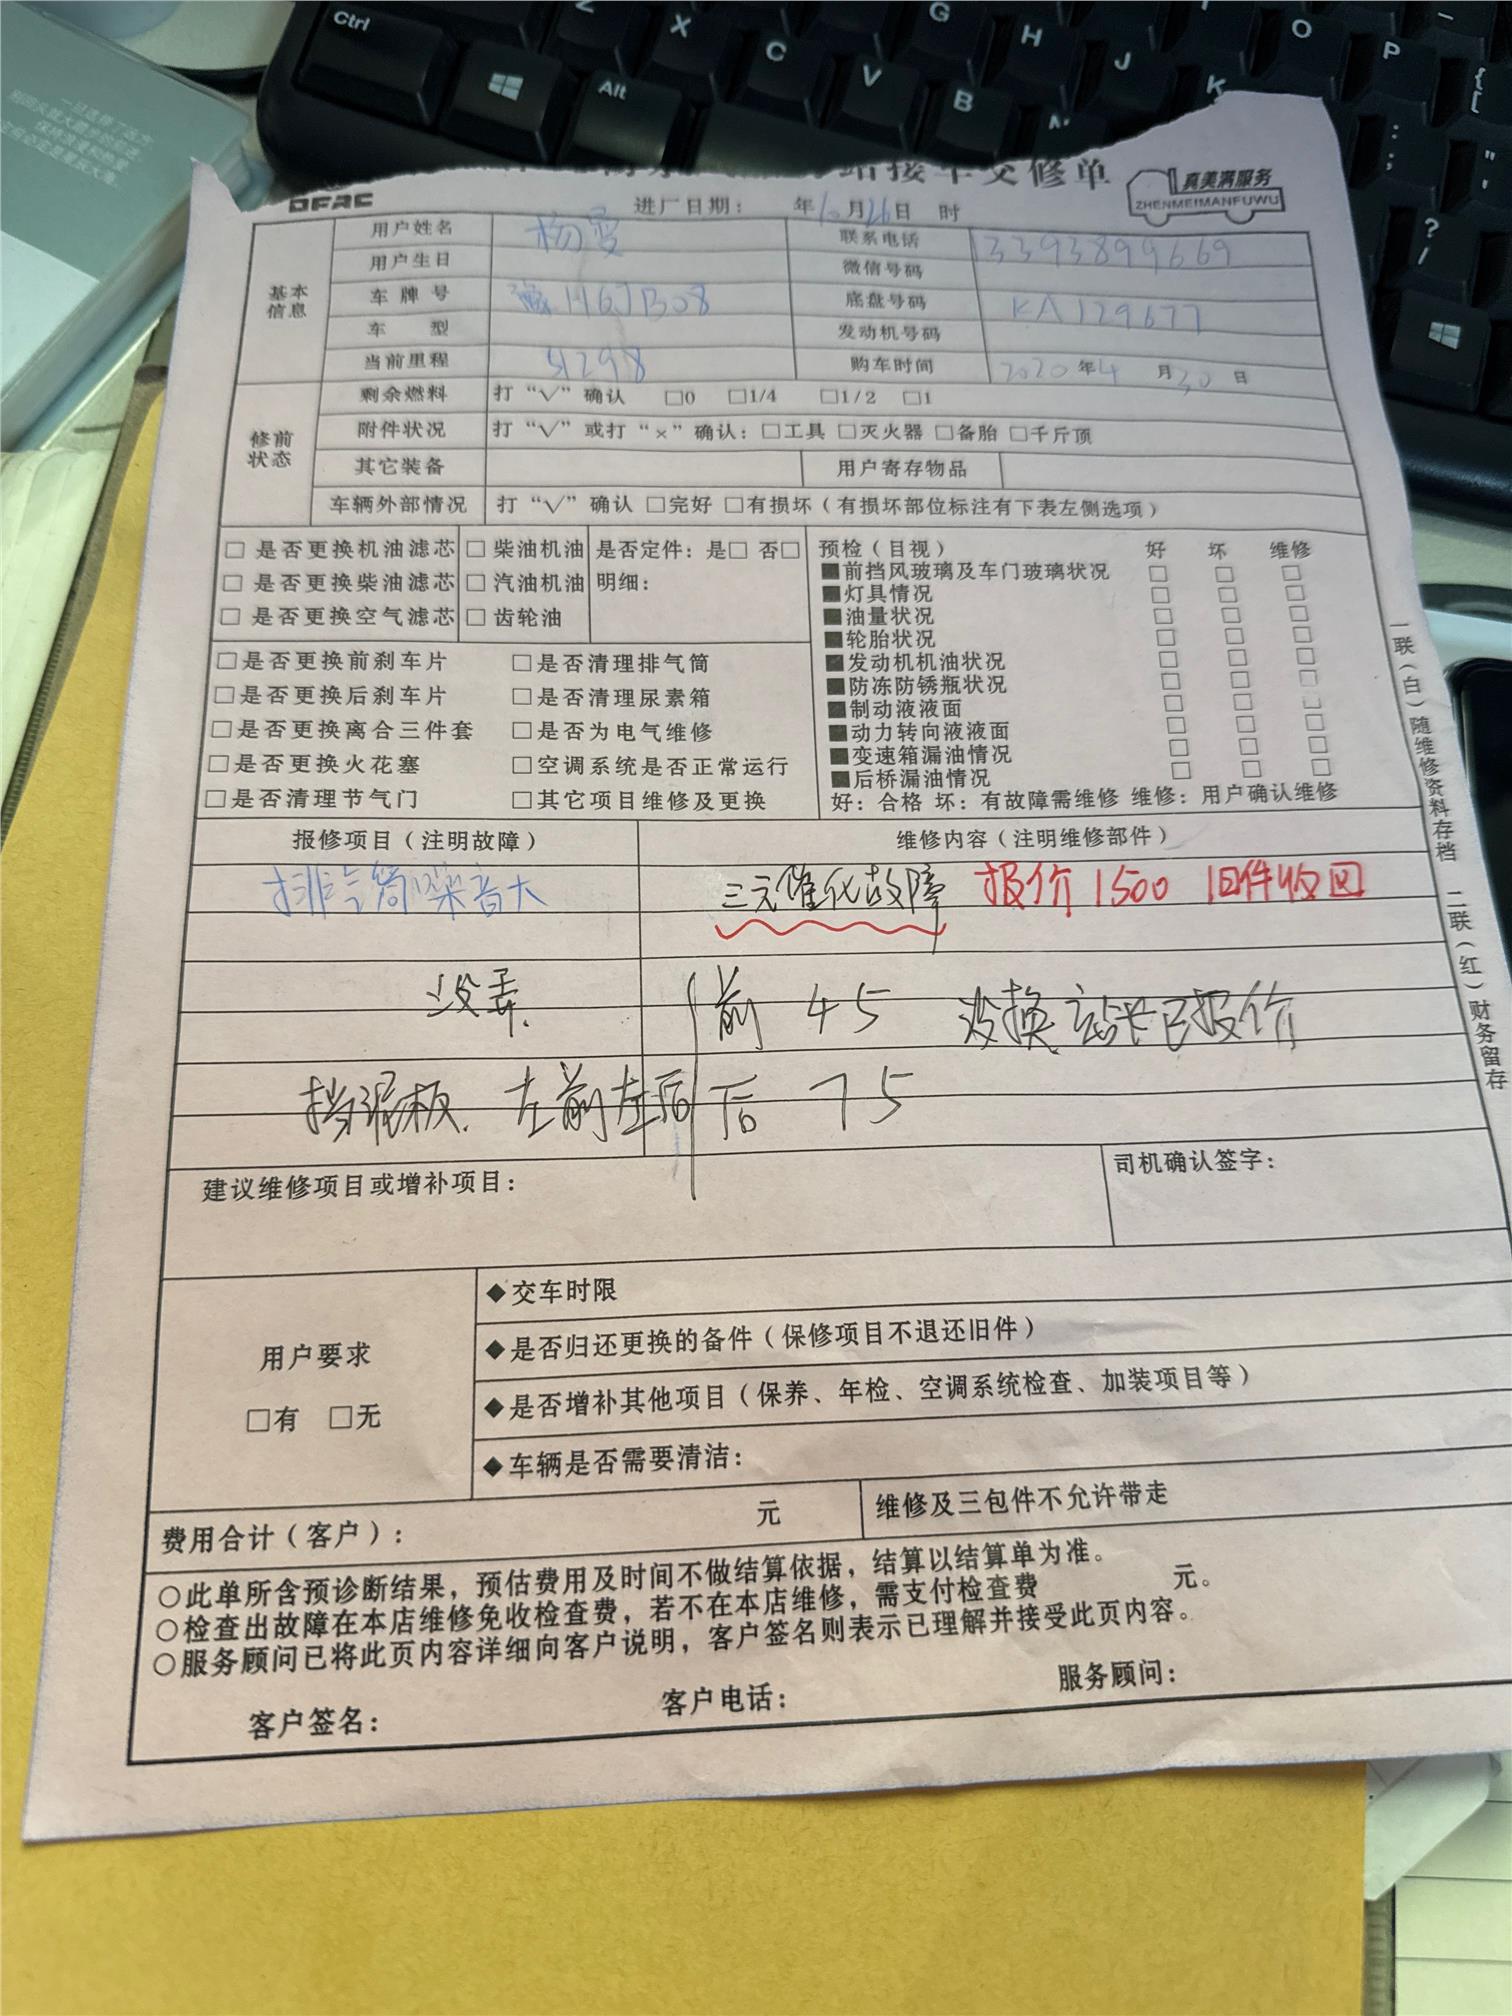 Ctrl
Z
X
C
V
B
N
G
H
J
K
O
P
Alt
站接车交修单
真美满服务
ZHENMEIMANFUWU
进厂日期： 年10月26日 时
基本信息
用户姓名 杨雯 联系电话 13393899669
用户生日 微信号码
车牌号 豫H6JB08 底盘号码 KA129677
车 型 发动机号码
当前里程 51298 购车时间 2020年4月30日
修前状态
剩余燃料 打“√”确认 □0 □1/4 □1/2 □1
附件状况 打“√”或打“×”确认：□工具 □灭火器 □备胎 □千斤顶
其它装备 用户寄存物品
车辆外部情况 打“√”确认 □完好 □有损坏（有损坏部位标注有下表左侧选项）
□ 是否更换机油滤芯 □ 柴油机油 是否定件：是□ 否□
□ 是否更换柴油滤芯 □ 汽油机油 明细：
□ 是否更换空气滤芯 □ 齿轮油
□是否更换前刹车片 □是否清理排气筒
□是否更换后刹车片 □是否清理尿素箱
□是否更换离合三件套 □是否为电气维修
□是否更换火花塞 □空调系统是否正常运行
□是否清理节气门 □其它项目维修及更换
预检（目视） 好 坏 维修
■前挡风玻璃及车门玻璃状况 □ □ □
■灯具情况 □ □ □
■油量状况 □ □ □
■轮胎状况 □ □ □
■发动机机油状况 □ □ □
■防冻防锈瓶状况 □ □ □
■制动液液面 □ □ □
■动力转向液液面 □ □ □
■变速箱漏油情况 □ □ □
■后桥漏油情况 □ □ □
好：合格 坏：有故障需维修 维修：用户确认维修
报修项目（注明故障） 维修内容（注明维修部件）
排气筒噪音大 三元催化故障 报价1500 旧件收回
没弄. 前 45 没换 站长已报价
挡泥板. 左前左后 后 75
建议维修项目或增补项目： 司机确认签字：
用户要求
□有 □无
◆交车时限
◆是否归还更换的备件（保修项目不退还旧件）
◆是否增补其他项目（保养、年检、空调系统检查、加装项目等）
◆车辆是否需要清洁：
费用合计（客户）： 元 维修及三包件不允许带走
○此单所含预诊断结果，预估费用及时间不做结算依据，结算以结算单为准。
○检查出故障在本店维修免收检查费，若不在本店维修，需支付检查费 元。
○服务顾问已将此页内容详细向客户说明，客户签名则表示已理解并接受此页内容。
客户签名： 客户电话： 服务顾问：
一联（白）随维修资料存档 二联（红）财务留存